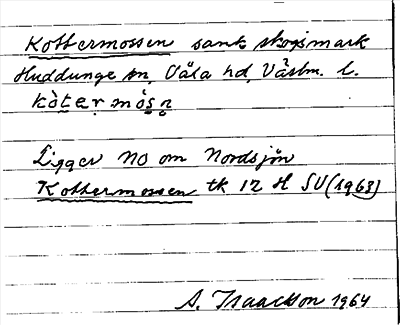 Kottermossen sank skogsmark
Huddunge sn, Våla hd, Västm. l.
kò̀termòsn
Ligger NO om Nordsjön
Kottermossen tk 12 H SV (1963)
S. Isaacson 1964